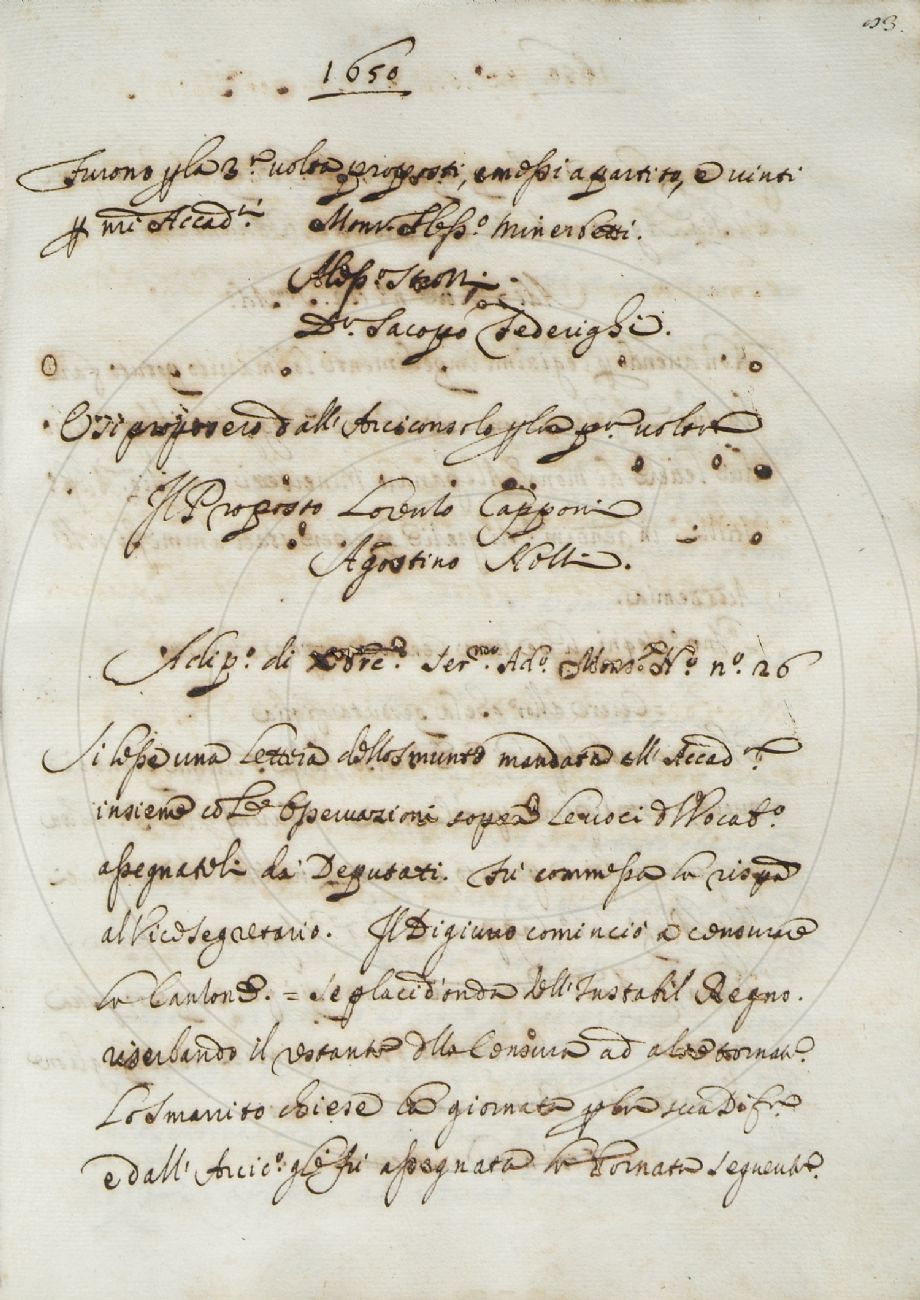 93.
1650
Furono p la 3.ª volta proposti, e messi a partito, e vinti
p nri Accad.ci Monr. Aless.º Minerbetti.
Aless.º Strozzi
Dr. Jacopo Federighi.
E si proposero dall' Arciconsolo p la pr.ª volta
Il Proposto Lorenzo Capponi
Agostino Nelli.
A di p.º di Xbre. Ser.mo Ad.º n.º 26
Si lesse una Lettera dello Smunto mandata all' Accad.ª
insieme co Le Osservazioni sopra Le voci d Vocab.º
assegnateli da Deputati. Fu commessa la rispa
al Vicesegretario. Il Digiuno cominciò a censurare
la Canzone. = Se placid'onda dell' Instabil Regno.
riserbando il restante dlla Censura ad altre tornate.
Lo Smarrito chiese la giornata p la sua Difesa
e dall' Arcic.º gli fu assegnata la Tornata seguente.